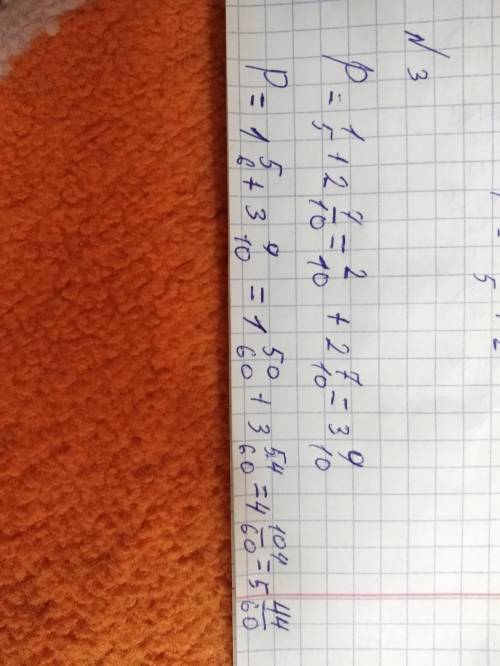 N 3
p = 1/5 + 2 7/10 = 2/10 + 2 7/10 = 3 9/10
p = 1 5/6 + 3 9/10 = 1 50/60 + 3 54/60 = 4 104/60 = 5 44/60